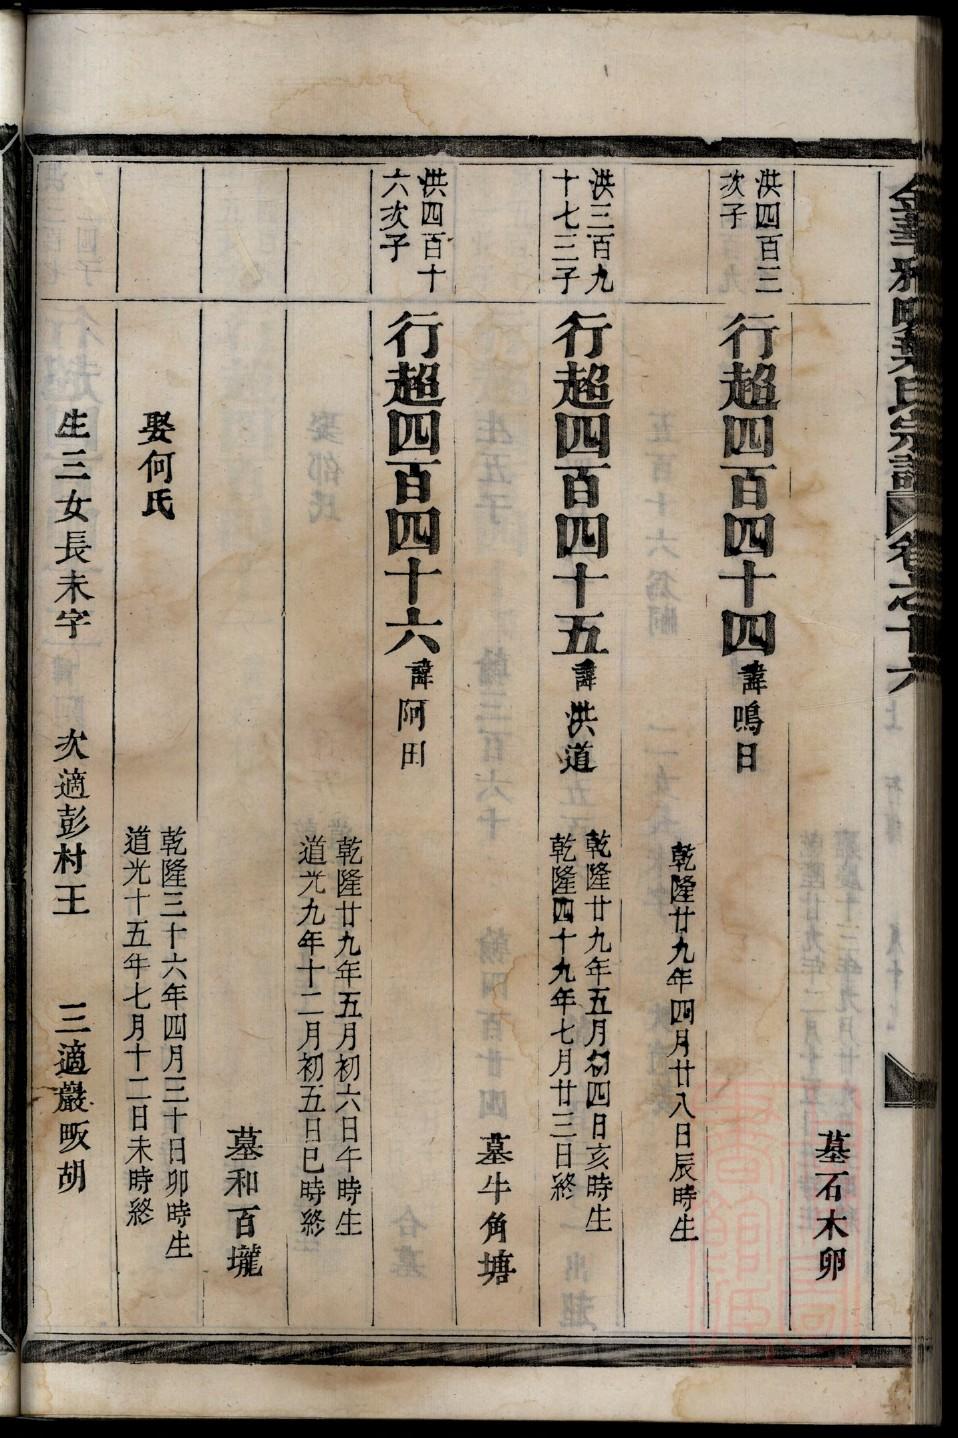 金華雅畈葉氏宗譜 卷之十六
墓石木卵
洪四百三
次子
行超四百四十四 諱鳴日
乾隆廿九年四月廿八日辰時生
洪三百九
十七三子
行超四百四十五 諱洪道
乾隆廿九年五月初四日亥時生
乾隆四十九年七月廿三日終
墓牛角塘
洪四百十
六次子
行超四百四十六 諱阿田
乾隆廿九年五月初六日午時生
道光九年十二月初五日巳時終
墓和百壠
娶何氏
乾隆三十六年四月三十日卯時生
道光十五年七月十二日未時終
生三女長未字 次適彭村王 三適巖畈胡